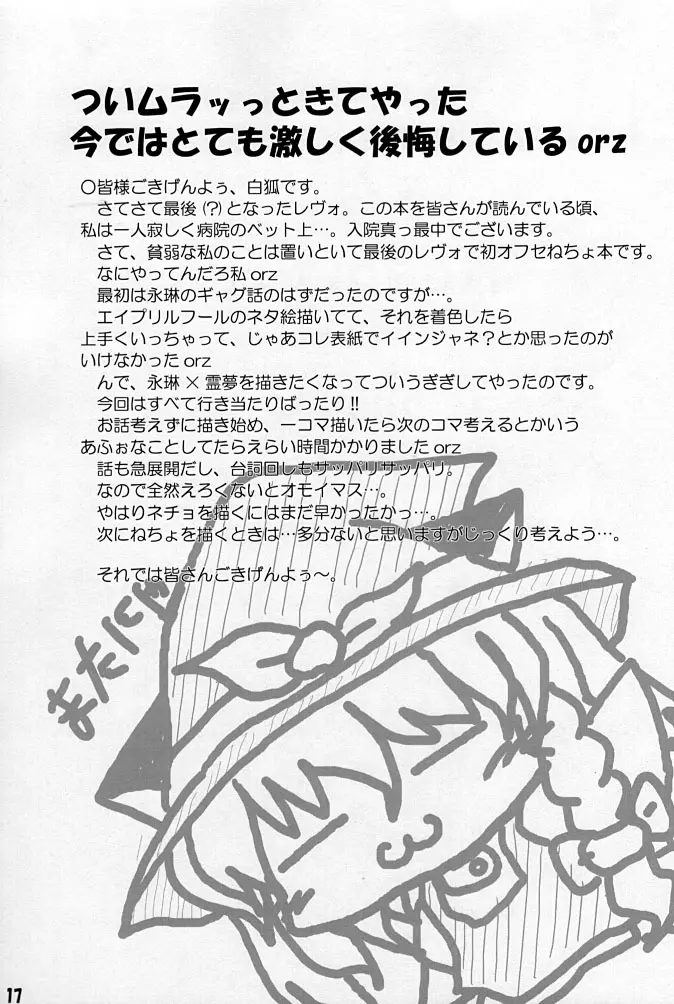 ついムラッっときてやった
今ではとても激しく後悔しているorz
○皆様ごきげんよぅ、白狐です。
さてさて最後(?)となったレヴォ。この本を皆さんが読んでいる頃、
私は一人寂しく病院のベット上…。入院真っ最中でございます。
さて、貧弱な私のことは置いといて最後のレヴォで初オフセねちょ本です。
なにやってんだろ私orz
最初は永琳のギャグ話のはずだったのですが…。
エイプリルフールのネタ絵描いてて、それを着色したら
上手くいっちゃって、じゃあコレ表紙でイインジャネ？とか思ったのが
いけなかったorz
んで、永琳×霊夢を描きたくなってついうぎぎしてやったのです。
今回はすべて行き当たりばったり!!
お話考えずに描き始め、一コマ描いたら次のコマ考えるとかいう
あふぉなことしてたらえらい時間かかりましたorz
話も急展開だし、台詞回しもサッパリサッパリ。
なので全然えろくないとオモイマス…。
やはりネチョを描くにはまだ早かったかっ…。
次にねちょを描くときは…多分ないと思いますがじっくり考えよう…。
それでは皆さんごきげんよぅ〜。
またに
17